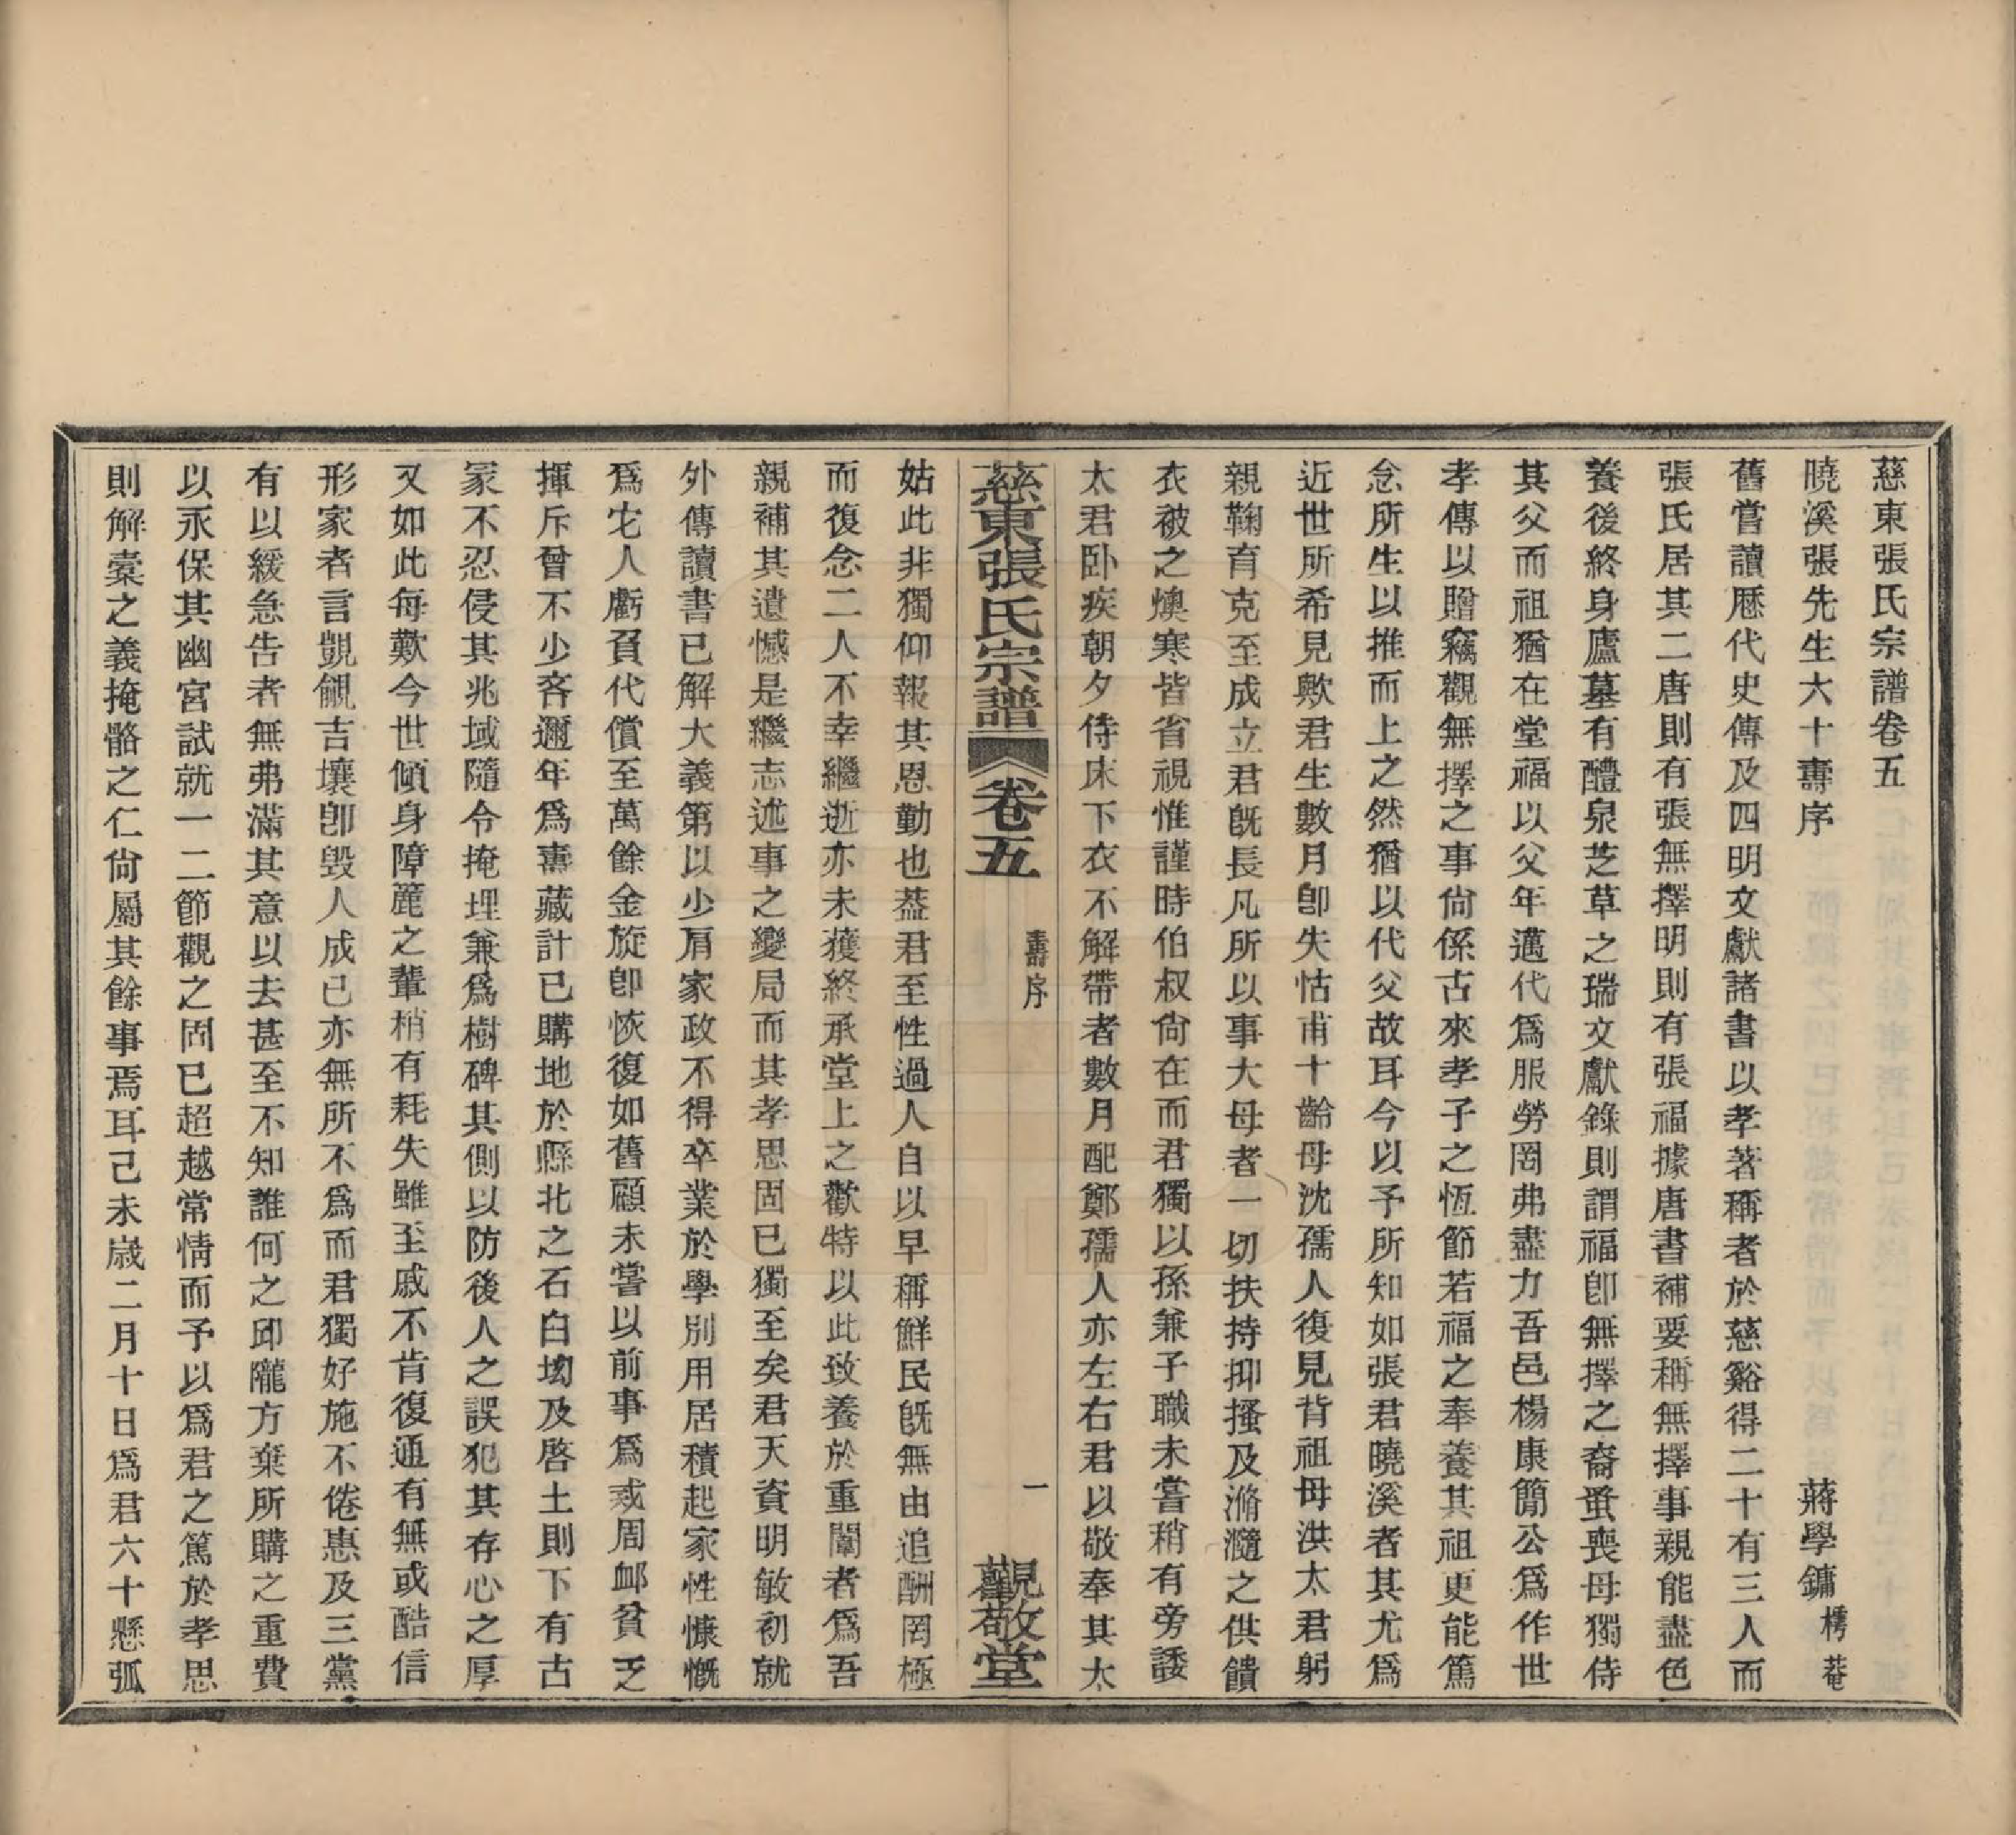 慈東張氏宗譜卷五
曉溪張先生六十壽序　蔣學鏞樗菴
舊嘗讀歷代史傳及四明文獻諸書以孝著稱者於慈谿得二十有三人而
張氏居其二唐則有張無擇明則有張福據唐書補要稱無擇事親能盡色
養後終身廬墓有醴泉芝草之瑞文獻錄則謂福卽無擇之裔蚤喪母獨侍
其父而祖猶在堂福以父年邁代爲服勞罔弗盡力吾邑楊康簡公爲作世
孝傳以贈竊觀無擇之事尙係古來孝子之恆節若福之奉養其祖更能篤
念所生以推而上之然猶以代父故耳今以予所知如張君曉溪者其尤爲
近世所希見歟君生數月卽失怙甫十齡母沈孺人復見背祖母洪太君躬
親鞠育克至成立君旣長凡所以事大母者一切扶持抑搔及滫瀡之供饋
衣被之燠寒皆省視惟謹時伯叔尙在而君獨以孫兼子職未嘗稍有旁諉
太君卧疾朝夕侍床下衣不解帶者數月配鄭孺人亦左右君以敬奉其太
慈東張氏宗譜　卷五　壽序　一　觀敬堂
姑此非獨仰報其恩勤也葢君至性過人自以早稱鮮民旣無由追酬罔極
而復念二人不幸繼逝亦未獲終承堂上之歡特以此致養於重闈者爲吾
親補其遺憾是繼志述事之變局而其孝思固已獨至矣君天資明敏初就
外傳讀書已解大義第以少肩家政不得卒業於學別用居積起家性慷慨
爲宅人虧負代償至萬餘金旋卽恢復如舊顧未嘗以前事爲戒周卹貧乏
揮斥曾不少吝邇年爲壽藏計已購地於縣北之石臼坳及啓土則下有古
冡不忍侵其兆域隨令掩埋兼爲樹碑其側以防後人之誤犯其存心之厚
又如此每歎今世傾身障簏之輩稍有耗失雖至戚不肯復通有無或酷信
形家者言覬覦吉壤卽毀人成己亦無所不爲而君獨好施不倦惠及三黨
有以緩急告者無弗滿其意以去甚至不知誰何之邱隴方棄所購之重費
以永保其幽宮試就一二節觀之固已超越常情而予以爲君之篤於孝思
則解橐之義掩骼之仁尙屬其餘事焉耳己未歲二月十日爲君六十懸弧